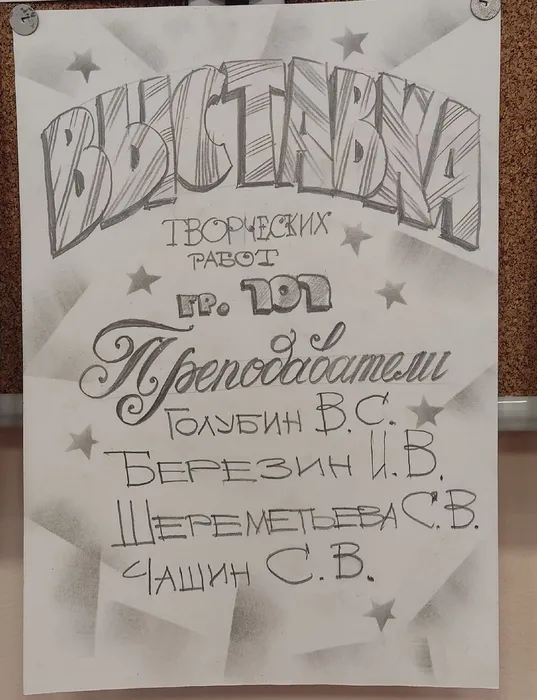 ВЫСТАВКА
ТВОРЧЕСКИХ
РАБОТ
ГР. 101
Преподаватели
ГОЛУБИН В.С.
БЕРЕЗИН И.В.
ШЕРЕМЕТЬЕВА С.В.
ЧАШИН С.В.